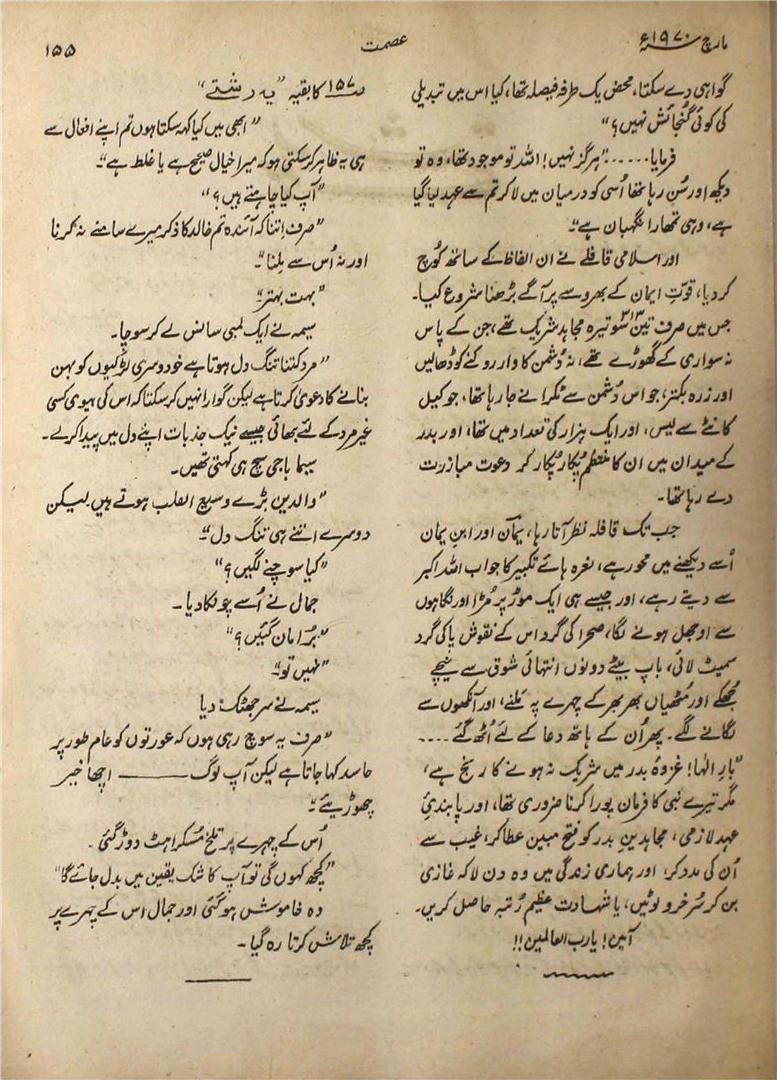 مارچ ۱۹۷۰ء
عصمت
۱۵۵
گواہی دے سکتا، محض یک طرفہ فیصلہ تھا، کیا اس میں تبدیلی
کی کوئی گنجائش نہیں؟"
فرمایا......"ہرگز نہیں! اللہ تو موجود تھا، وہ تو
دیکھ اور سُن رہا تھا اُسی کو درمیان میں لا کر تم سے عہد لیا گیا
ہے، وہی تمھارا نگہبان ہے"۔
اور اسلامی قافلے نے ان الفاظ کے ساتھ کُوچ
کر دیا، قوّتِ ایمان کے بھروسے پر آگے بڑھنا شروع کیا۔
جس میں صرف تین سو تیرہ ۳۱۳ مجاہد شریک تھے، جن کے پاس
نہ سواری کے گھوڑے تھے، نہ دُشمن کا وار روکنے کو ڈھالیں
اور زرہ بکتر، جو اس دُشمن سے ٹکرانے جا رہا تھا، جو کیل
کانٹے سے لیس، اور ایک ہزار کی تعداد میں تھا، اور بدر
کے میدان میں ان کا منتظم پُکار پُکار کر دعوت مبازرت
دے رہا تھا۔
جب تک قافلہ نظر آتا رہا، یمان اور ابنِ یمان
اُسے دیکھنے میں محو رہے، نعرہ ہائے تکبیر کا جواب اللہ اکبر
سے دیتے رہے، اور جیسے ہی ایک موڑ پر مُڑا اور نگاہوں
سے اوجھل ہونے لگا، صحرا کی گرد اس کے نقوش پا کی گرد
سمیٹ لائی، باپ بیٹے دونوں انتہائی شوق سے نیچے
جُھکے اور مُٹھیاں بھر بھر کے چہرے پہ مَلنے، اور آنکھوں سے
لگانے لگے۔ پھر اُن کے ہاتھ دعا کے لئے اُٹھ گئے ....
"بارِ الٰہا! غزوۂ بدر میں شریک نہ ہونے کا رنج ہے،
مگر تیرے نبی کا فرمان پورا کرنا ضروری تھا، اور پابندیِٔ
عہد لازمی، مجاہدینِ بدر کو فتح مبین عطا کر، غیب سے
اُن کی مدد کر، اور ہماری زندگی میں وہ دن لا کہ غازی
بن کر سُرخرو لوٹیں، یا شہادت عظیم رُتبہ حاصل کریں۔
آمین! یا رب العالمین!!
صـ ۱۵۷ کا بقیہ "یہ رشتے"
"ابھی میں کیا کہہ سکتا ہوں تم اپنے افعال سے
ہی یہ ظاہر کر سکتی ہو کہ میرا خیال صحیح ہے یا غلط ہے"۔
"آپ کیا چاہتے ہیں؟"
"صرف اِتنا کہ آئندہ تم خالد کا ذکر میرے سامنے نہ کرنا
اور نہ اُس سے ملنا"۔
"بہت بہتر"۔
سیمہ نے ایک لمبی سانس لے کر سوچا۔
"مرد کتنا تنگ دل ہوتا ہے خود دوسری لڑکیوں کو بہن
بنانے کا دعویٰ کرتا ہے لیکن گوارا نہیں کر سکتا کہ اس کی بیوی کسی
غیر مرد کے لئے بھائی جیسے نیک جذبات اپنے دل میں پیدا کرلے۔
سیما باجی سچ ہی کہتی تھیں۔
"والدین بڑے وسیع القلب ہوتے ہیں لیکن
دوسرے اتنے ہی تنگ دل"۔
"کیا سوچنے لگیں؟"
جمال نے اُسے چونکا دیا۔
"بُرا مان گئیں؟"
"نہیں تو"۔
سیمہ نے سر جھٹک دیا
"صرف یہ سوچ رہی ہوں کہ عورتوں کو عام طور پر
حاسد کہا جاتا ہے لیکن آپ لوگ ——— اچھا خیر
چھوڑیئے"۔
اُس کے چہرے پر تلخ مُسکراہٹ دوڑ گئی۔
"کچھ کہوں گی تو آپ کا شک یقین میں بدل جائے گا"
وہ خاموش ہو گئی اور جمال اس کے چہرے پر
کچھ تلاش کرتا رہ گیا۔